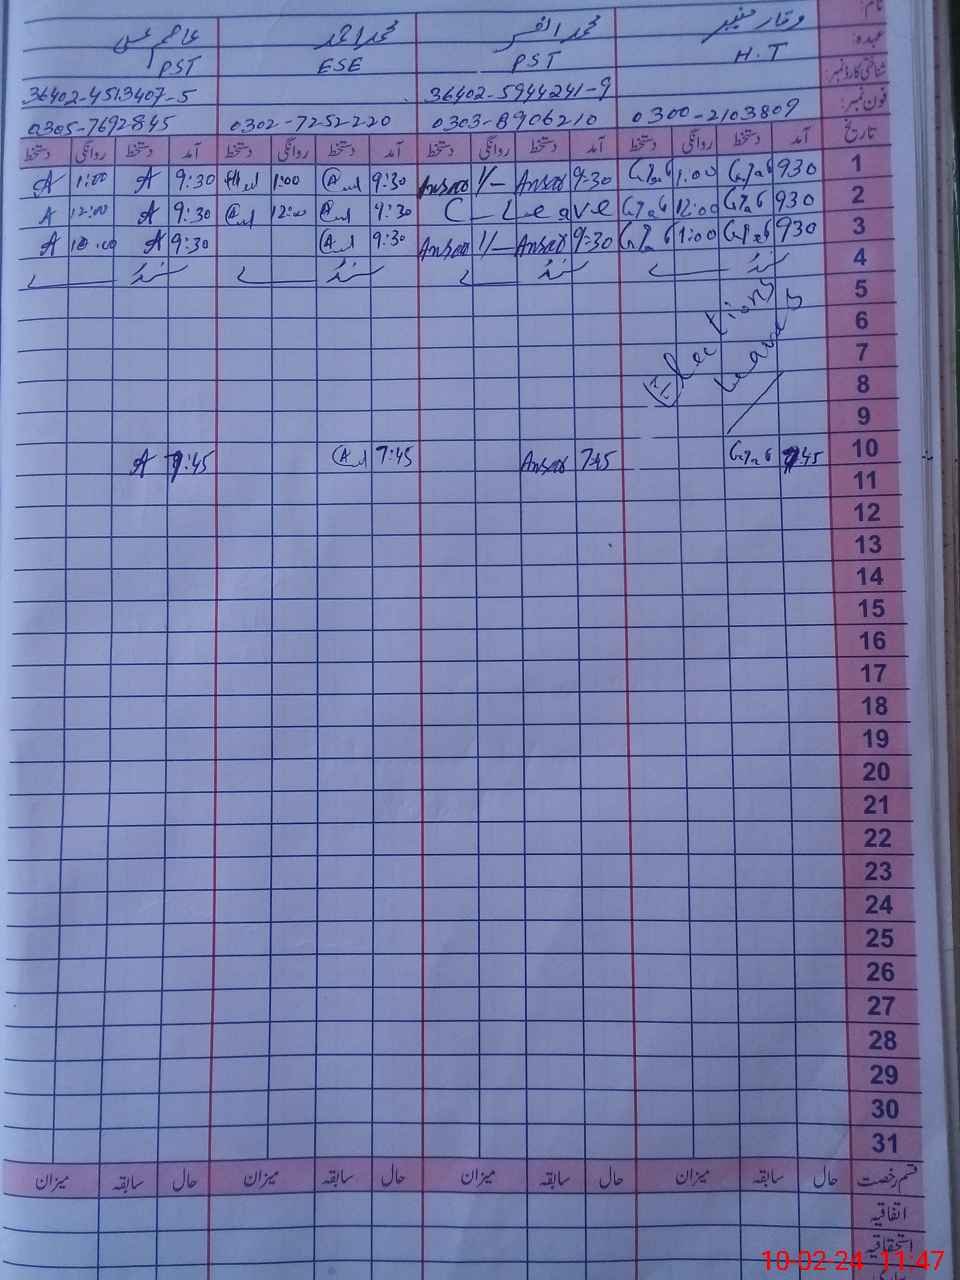 نام: وقار منیر محمد افسر محمد احمد عاصم عیسیٰ
عہدہ: H.T PST ESE PST
شناختی کارڈ نمبر: 36402-5944241-9 36402-4513407-5
فون نمبر: 0300-2103809 0303-8906210 0302-7252220 0305-7692845
تاریخ آمد دستخط روانگی دستخط آمد دستخط روانگی دستخط آمد دستخط روانگی دستخط آمد دستخط روانگی دستخط
1 930 1:00 9:30 Ansar 1/- Ansar 9:30 1:00 9:30 A 1:00 A
2 930 12:00 C-Leave 9:30 12:00 9:30 A 12:00 A
3 930 1:00 9:30 Ansar 1/- Ansar 9:30 9:30 A A
4 سنڈے سنڈے سنڈے سنڈے
5 Elections
6 Leaves
7
8
9
10 7:45 7:45 Ansar 7:45 7:45 A
11
12
13
14
15
16
17
18
19
20
21
22
23
24
25
26
27
28
29
30
31
قسم رخصت حال سابقہ میزان حال سابقہ میزان حال سابقہ میزان حال سابقہ میزان
اتفاقیہ
استحقاقیہ
10-02-24 11:47